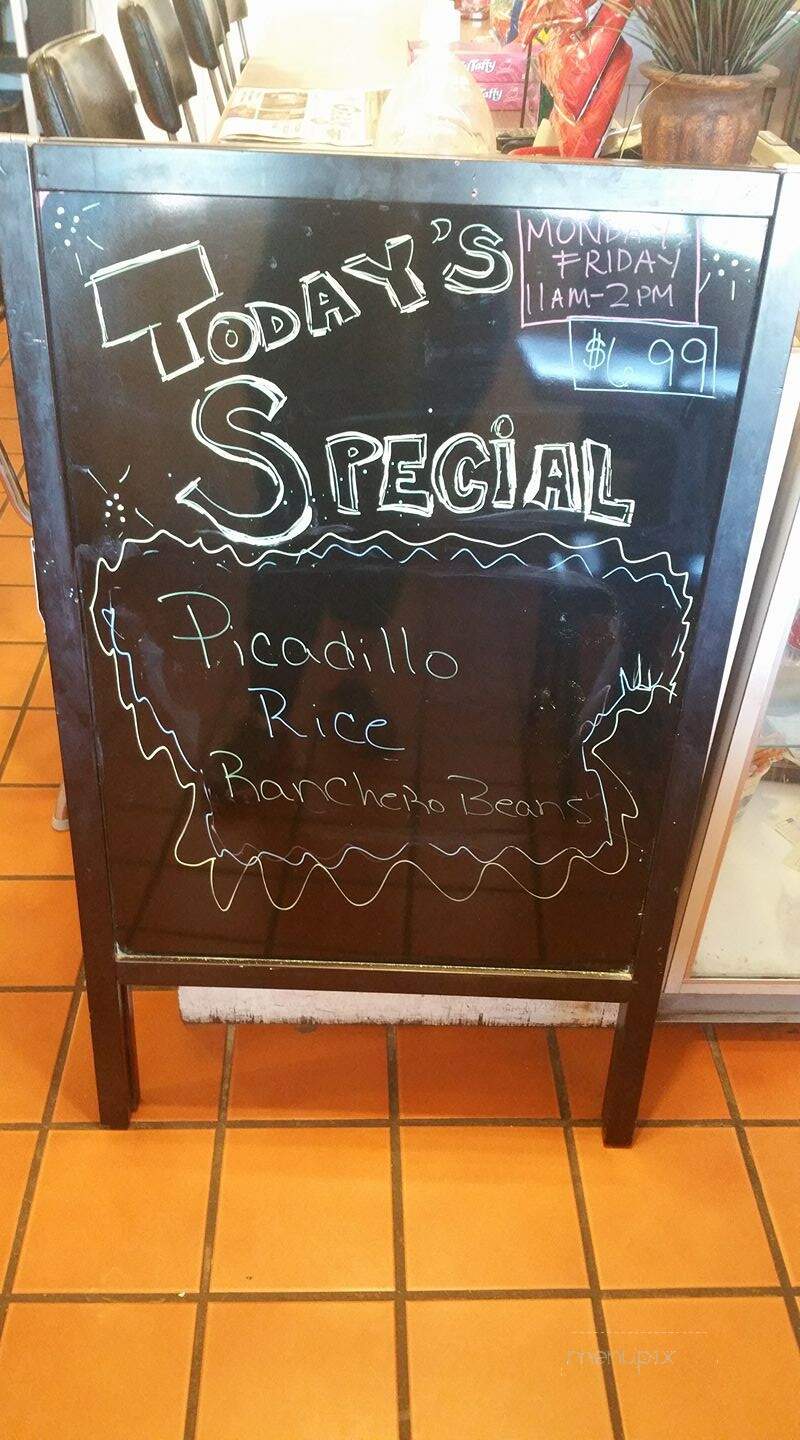 Taffy
Taffy
TODAY'S
MONDAY-
FRIDAY
11AM-2PM
$6.99
SPECiAL
Picadillo
Rice
Ranchero Beans
menupix